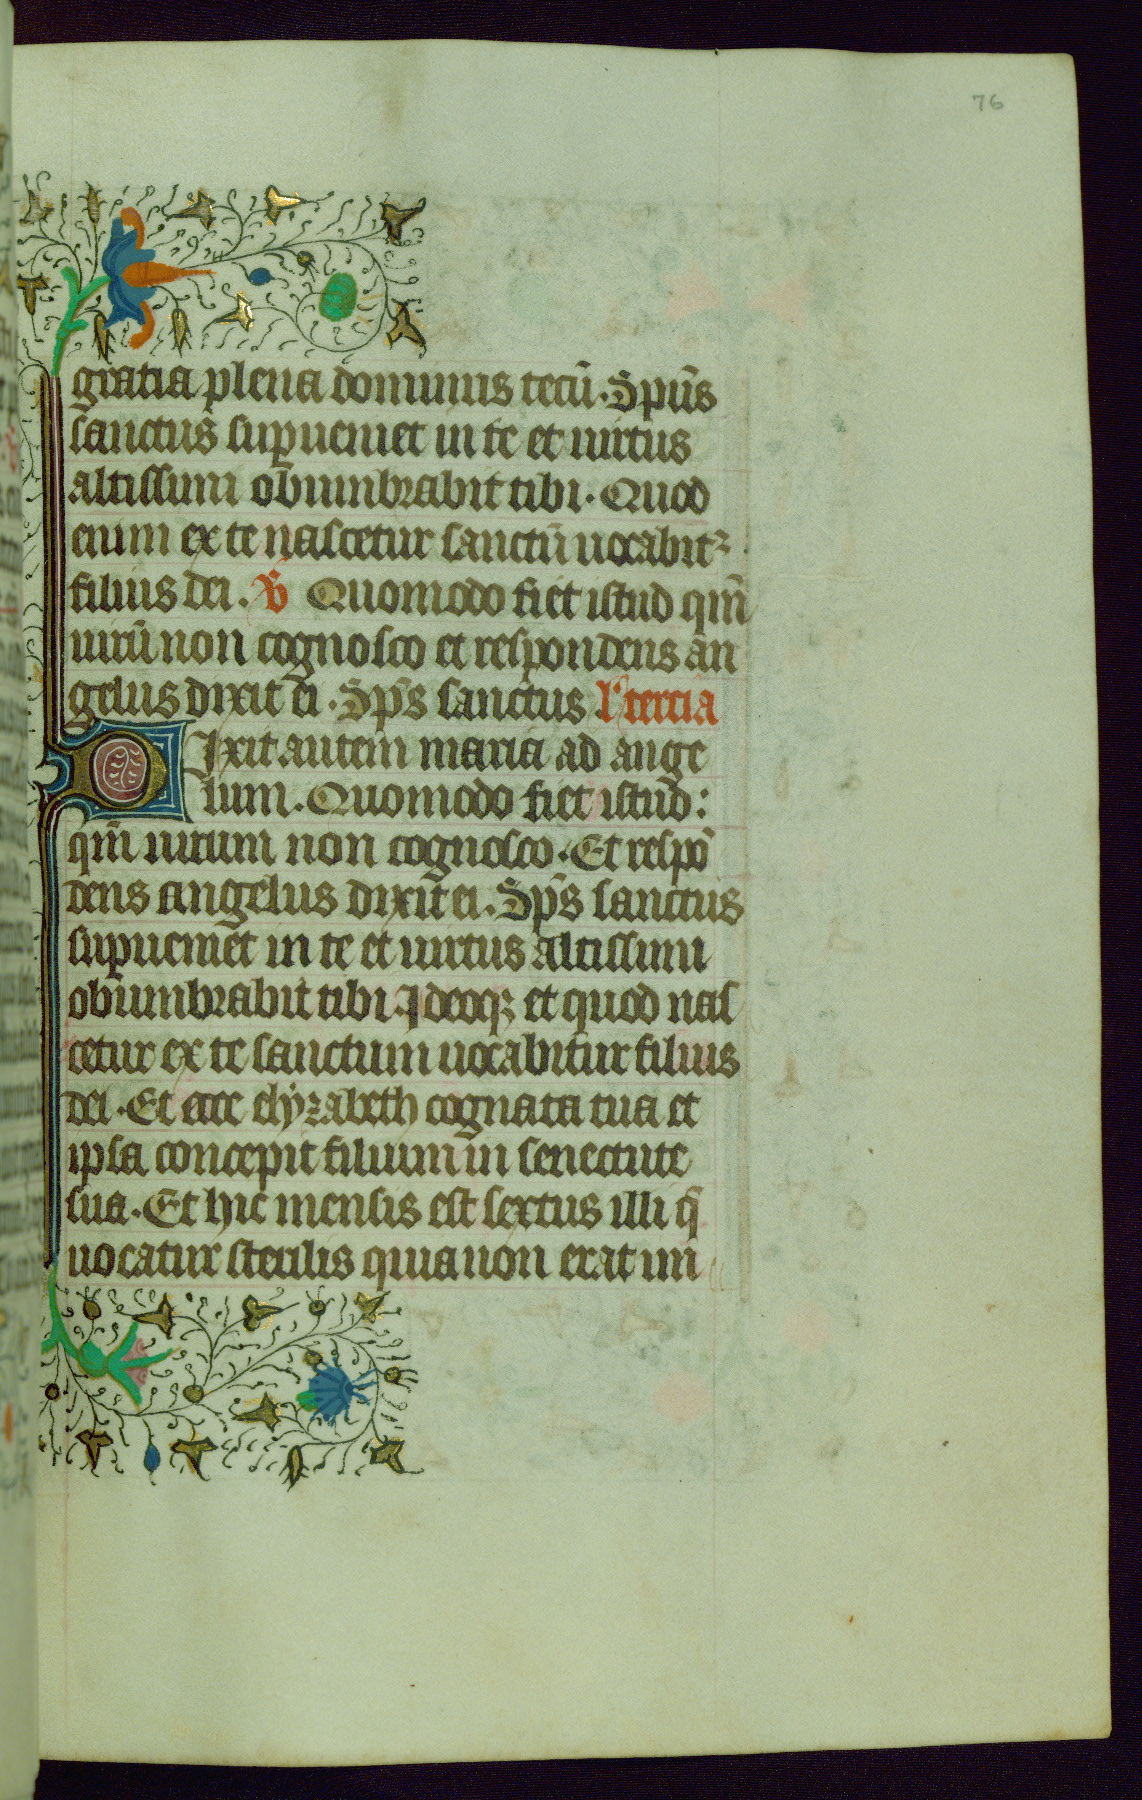 76
gratia plena dominus tecū. Spūs
sanctus supueniet in te et uirtus
altissimi obumbrabit tibi. Quod
enim ex te nascetur sanctū uocabitꝛ
filius dei. V̄ Quomodo fiet istud qm̄
uirū non cognosco et respondens an
gelus dixit ei. Sp̄s sanctus l' tercia
Dixit autem maria ad ange
lum. Quomodo fiet istud:
qm̄ uirum non cognosco. Et respō
dens angelus dixit ei. Sp̄s sanctus
supueniet in te et uirtus altissimi
obumbrabit tibi Ideoqꝫ et quod nas
cetur ex te sanctum uocabitur filius
dei. Et ecce elyzabeth cognata tua et
ipsa concepit filium in senectute
sua. Et hic mensis est sextus illi q̄
uocatur sterilis quia non erat im